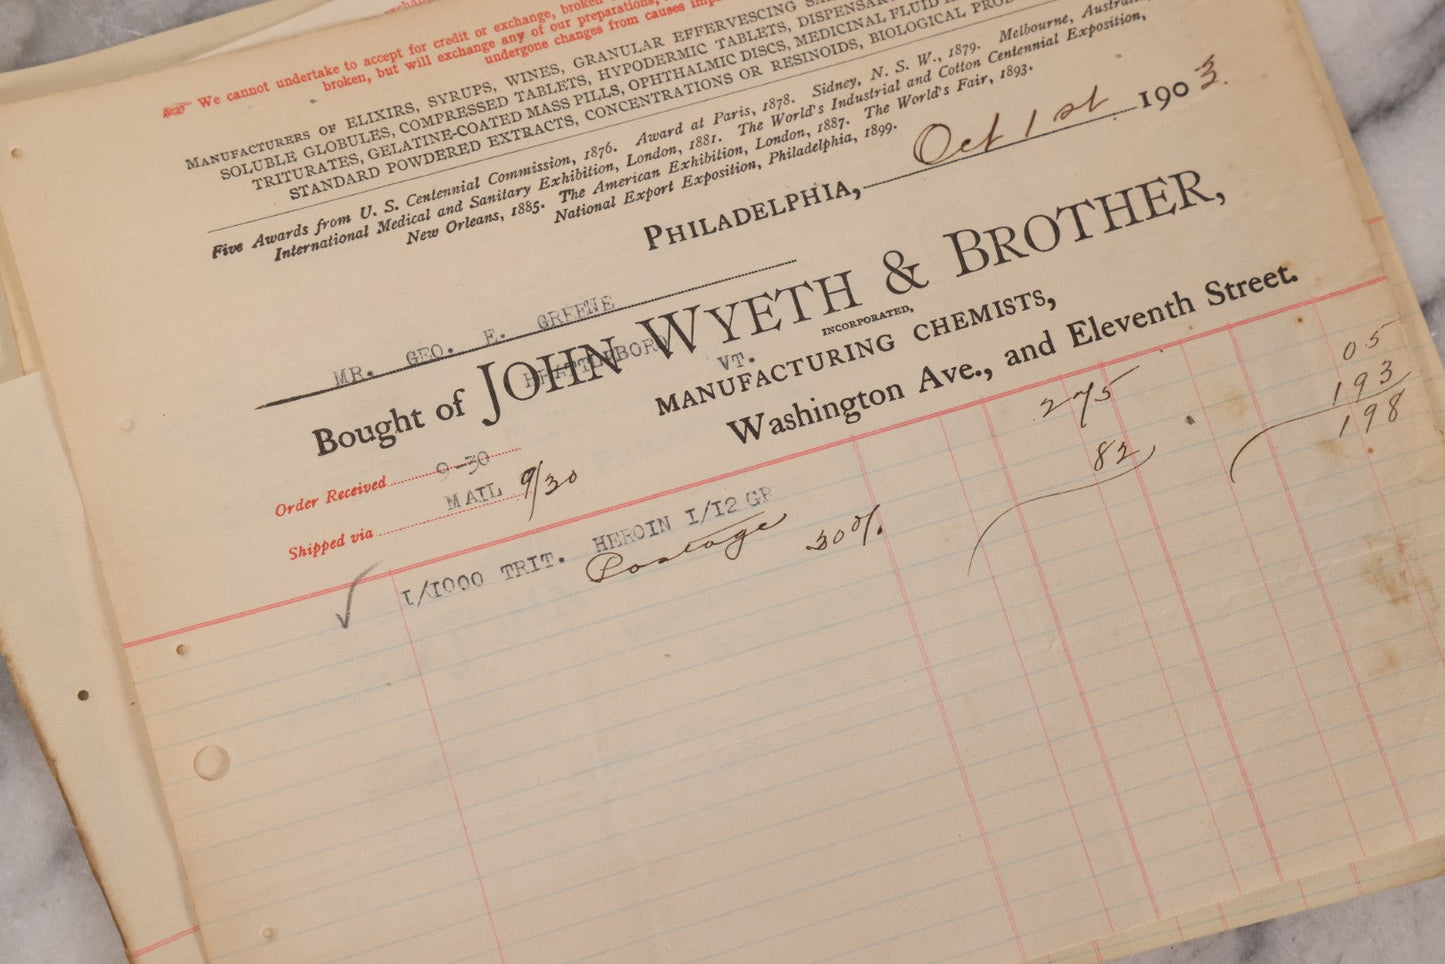 We cannot undertake to accept for credit or exchange, broken
broken, but will exchange any of our preparations,
undergone changes from causes
MANUFACTURERS OF ELIXIRS, SYRUPS, WINES, GRANULAR EFFERVESCING
SOLUBLE GLOBULES, COMPRESSED TABLETS, HYPODERMIC TABLETS,
TRITURATES, GELATINE-COATED MASS PILLS, OPHTHALMIC DISCS, MEDICINAL FLUID
STANDARD POWDERED EXTRACTS, CONCENTRATIONS OR RESINOIDS, BIOLOGICAL
Five Awards from U. S. Centennial Commission, 1876. Award at Paris, 1878. Sidney, N. S. W., 1879. Melbourne,
International Medical and Sanitary Exhibition, London, 1881. The World's Industrial and Cotton Centennial Exposition,
New Orleans, 1885. The American Exhibition, London, 1887. The World's Fair, 1893.
National Export Exposition, Philadelphia, 1899.
PHILADELPHIA, Oct 1st 1903.
MR. GEO. E. GREENE
BRATTLEBORO VT.
Bought of JOHN WYETH & BROTHER,
INCORPORATED,
MANUFACTURING CHEMISTS,
Washington Ave., and Eleventh Street.
Order Received 9-30
Shipped via MAIL 9/30
1/1000 TRIT. HEROIN 1/12 GR 275
Postage 05
30% 82 193
198